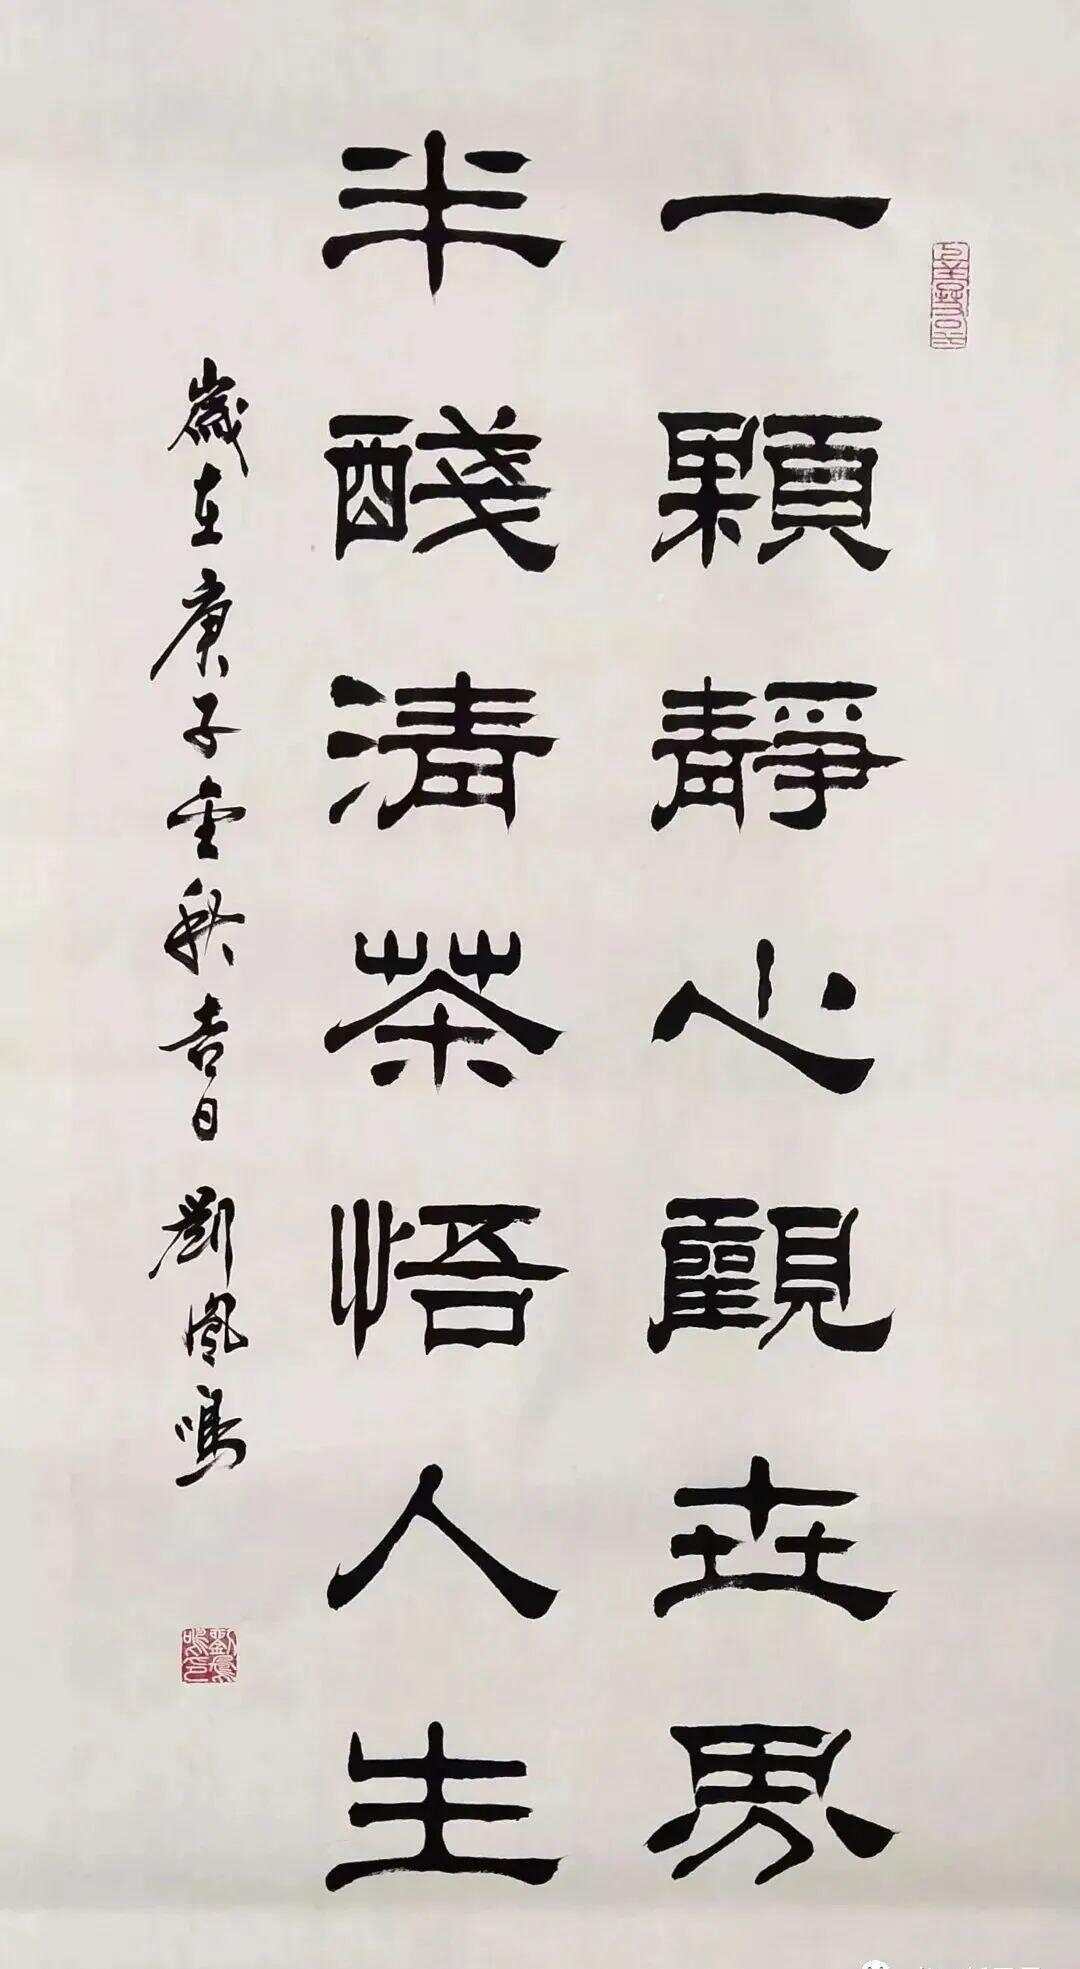 一顆靜心觀世界
半醆清茶悟人生
歲在庚子金秋吉日 劉鳳鳴